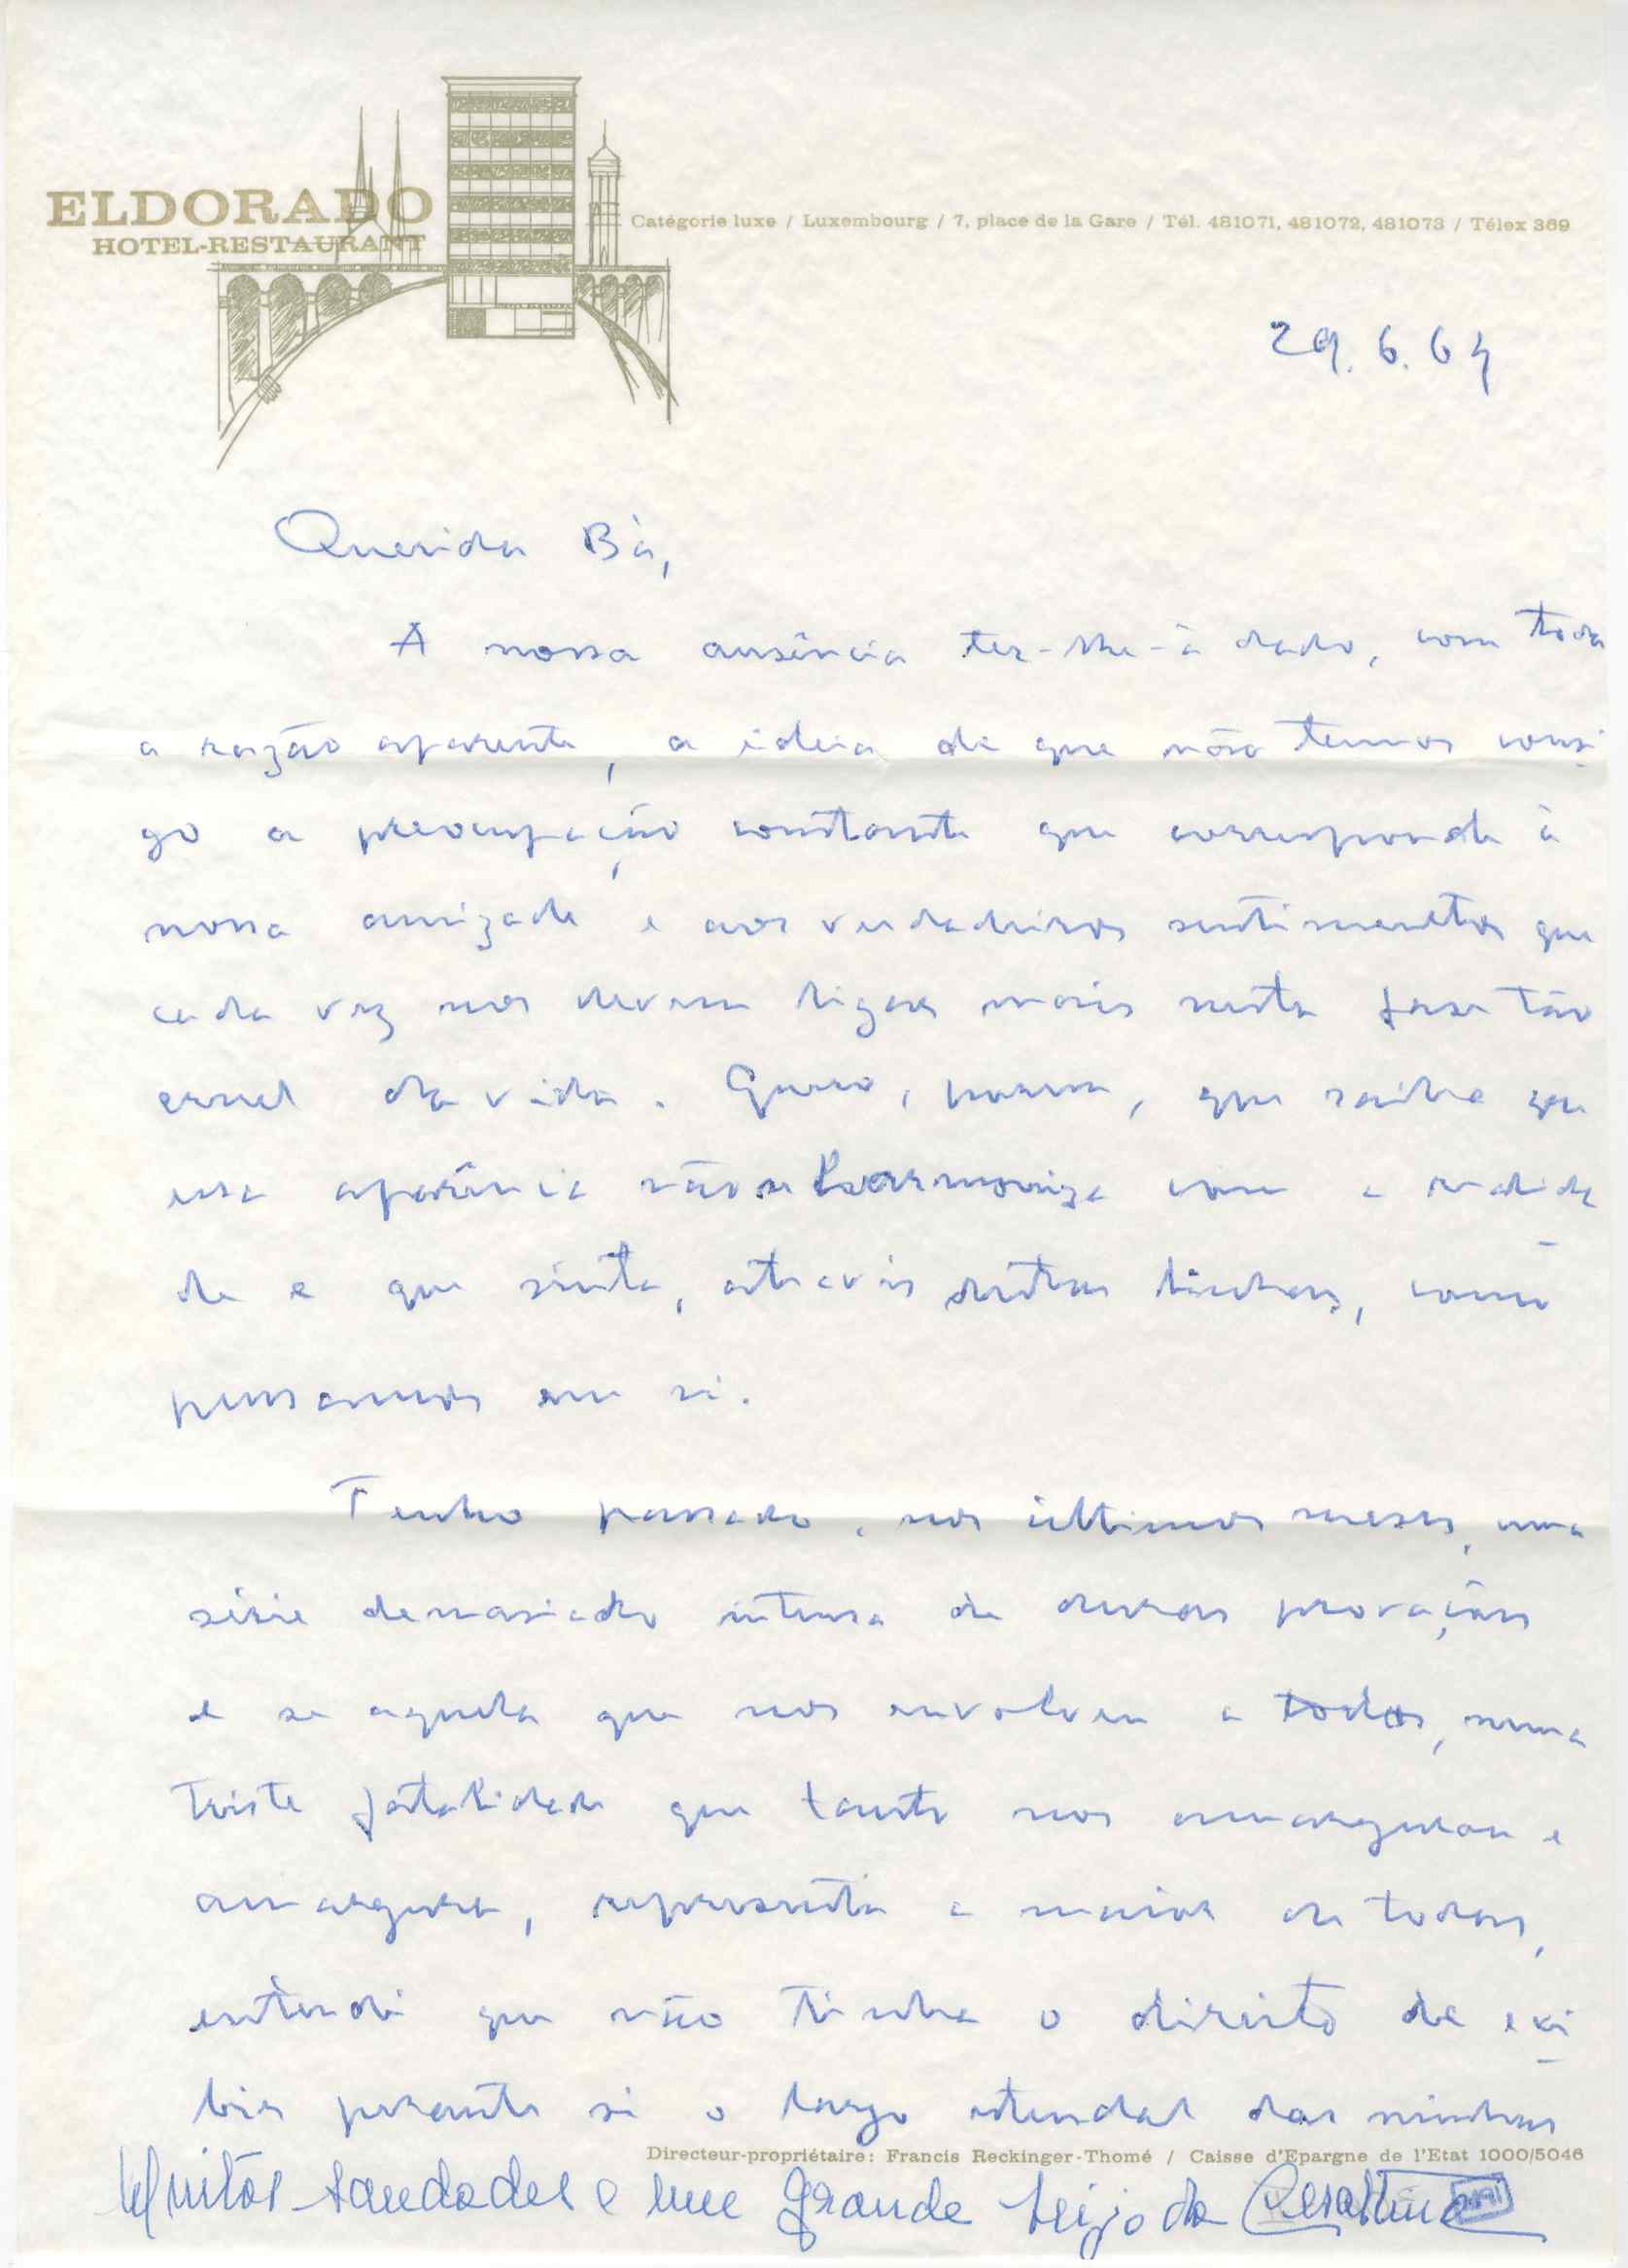 ELDORADO
HOTEL-RESTAURANT
Catégorie luxe / Luxembourg / 7, place de la Gare / Tél. 481071, 481072, 481073 / Télex 369
29.6.64
Querida Bá,
A nossa ausência ter-lhe-à dado, com toda
a razão aparente, a ideia de que não temos consi-
go a preocupação constante que corresponde à
nossa amizade e aos verdadeiros sentimentos que
cada vez nos devem ligar mais nesta fase tão
cruel da vida. Quero, porém, que saiba que
essa aparência não se harmoniza com a realida-
de e que sinta, através destas linhas, como
pensamos em si.
Tenho passado, nos últimos meses, uma
série demasiado intensa de duras provações
e se aquela que nos envolveu a todos, numa
triste fatalidade que tanto nos amargurou e
amargura, representa a maior de todas,
entendi que não tinha o direito de exi-
bir perante si o largo estendal das minhas
Directeur-propriétaire: Francis Reckinger-Thomé / Caisse d'Epargne de l'Etat 1000/5046
Muitas saudades e um grande beijo da